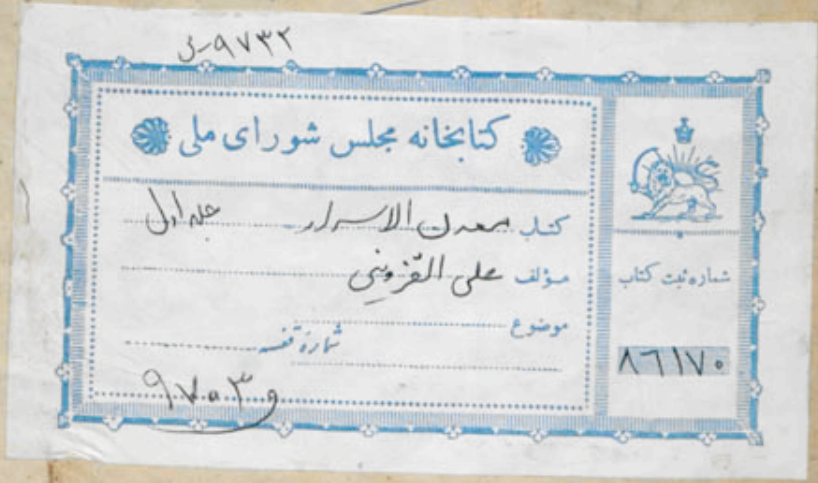 ۹۷۳۲
کتابخانه مجلس شورای ملی
کتاب معدن الاسرار جلد اول
مؤلف علی القزوینی
موضوع
شمارهٔ قفسه
شماره ثبت کتاب
۸۶۱۷۰